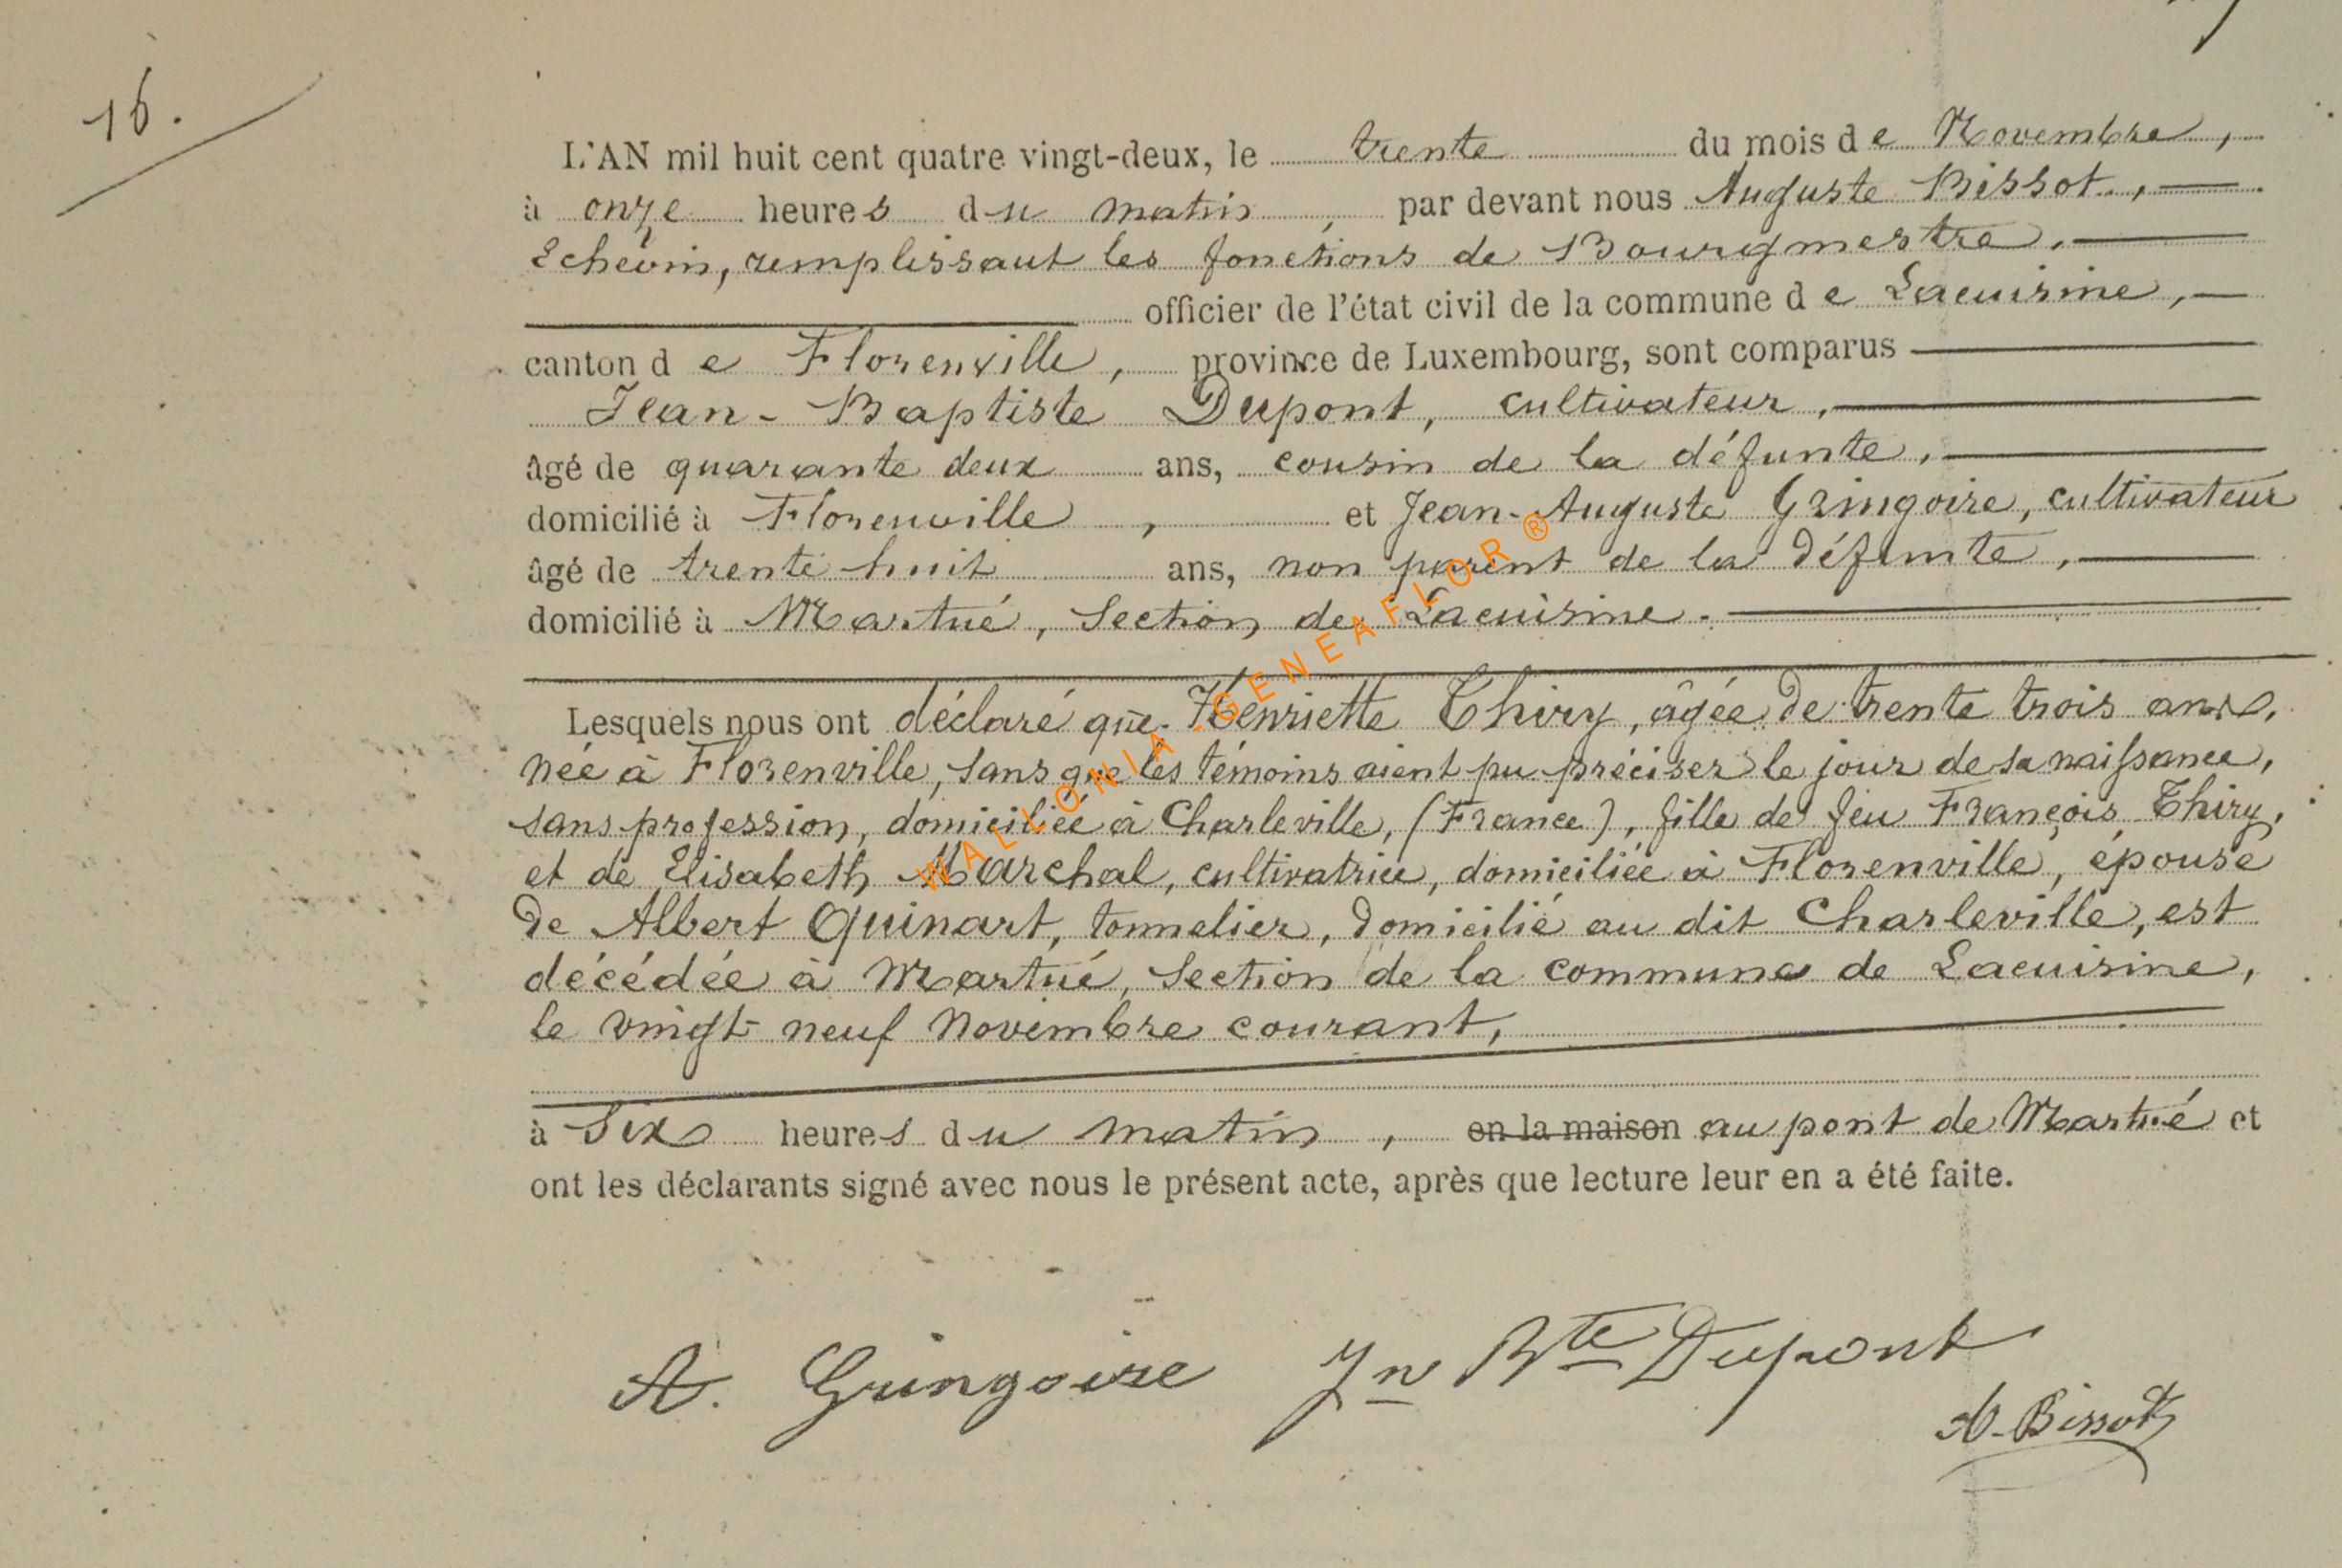 16.
L'AN mil huit cent quatre vingt-deux, le trente du mois de Novembre,
à onze heures du matin, par devant nous Auguste Bissot,
Echevin, remplissant les fonctions de Bourgmestre,
officier de l'état civil de la commune de Lacuisine,
canton de Florenville, province de Luxembourg, sont comparus
Jean-Baptiste Dupont, cultivateur,
âgé de quarante deux ans, cousin de la défunte,
domicilié à Florenville, et Jean-Auguste Gringoire, cultivateur
âgé de trente huit ans, non parent de la défunte,
domicilié à Martué, Section de Lacuisine.
Lesquels nous ont déclaré que Henriette Thiry, âgée de trente trois ans,
née à Florenville, sans que les témoins aient pu préciser le jour de sa naissance,
sans profession, domiciliée à Charleville, (France), fille de feu François Thiry,
et de Elisabeth Marchal, cultivatrice, domiciliée à Florenville, épouse
de Albert Quinart, tonnelier, domicilié au dit Charleville, est
décédée à Martué, Section de la commune de Lacuisine,
le vingt-neuf Novembre courant,
à Six heures du matin, en la maison au pont de Martué et
ont les déclarants signé avec nous le présent acte, après que lecture leur en a été faite.
A. Gringoire Jn Bte Dupont
A. Bissot
WALLONIA-GENEAFLOR ®